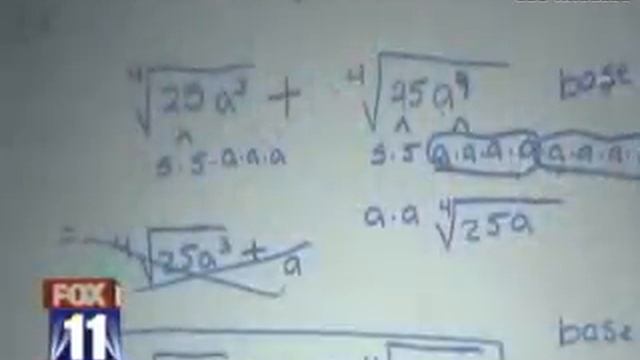 ∜25a³ + ∜25a⁹ base
5·5·a·a·a 5·5 a·a·a·a a·a·a·
a·a ∜25a
= ∜25a³ + a
FOX
11
base